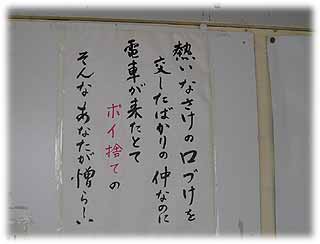 熱いなさけの口づけを
交したばかりの仲なのに
電車が来たとて
ポイ捨ての
そんなあなたが憎らしい